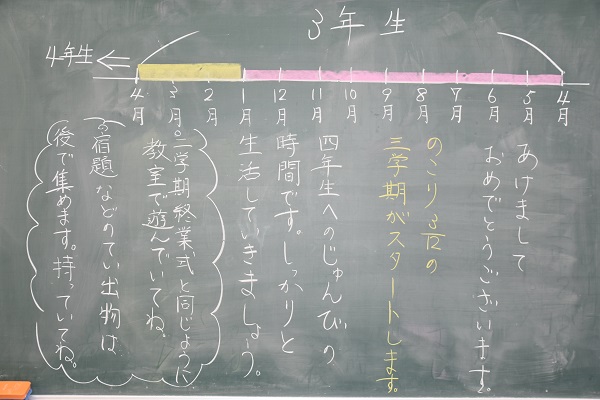 3年生
4年生
4月
5月
6月
7月
8月
9月
10月
11月
12月
1月
2月
3月
4月
あけまして
おめでとうございます。
のこり3/12の
三学期がスタートします。
四年生へのじゅんびの
時間です。しっかりと
生活していきましょう。
。二学期終業式と同じように
教室で遊んでいてね。
。宿題などのてい出物は
後で集めます。持っていてね。